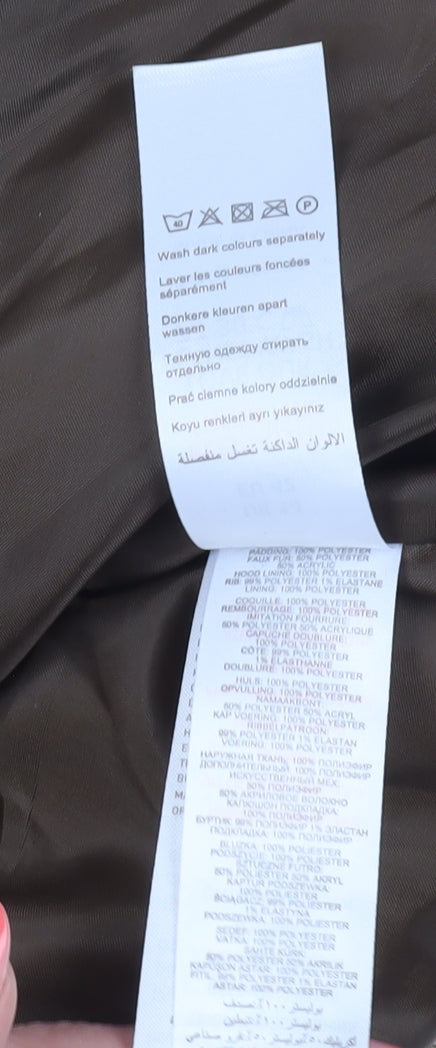 40
P
Wash dark colours separately
Laver les couleurs foncées
séparément
Donkere kleuren apart
wassen
Темную одежду стирать
отдельно
Prać ciemne kolory oddzielnie
Koyu renkleri ayrı yıkayınız
الالوان الداكنة تغسل منفصلة
PADDING: 100% POLYESTER
FAUX FUR: 50% POLYESTER
50% ACRYLIC
HOOD LINING: 100% POLYESTER
RIB: 99% POLYESTER 1% ELASTANE
LINING: 100% POLYESTER
COQUILLE: 100% POLYESTER
REMBOURRAGE: 100% POLYESTER
IMITATION FOURRURE:
50% POLYESTER 50% ACRYLIQUE
CAPUCHE DOUBLURE:
100% POLYESTER
CÔTE: 99% POLYESTER
1% ELASTHANNE
DOUBLURE: 100% POLYESTER
HULS: 100% POLYESTER
OPVULLING: 100% POLYESTER
NAMAAKBONT:
50% POLYESTER 50% ACRYL
KAP VOERING: 100% POLYESTER
RIBBELPATROON:
99% POLYESTER 1% ELASTAN
VOERING: 100% POLYESTER
НАРУЖНАЯ ТКАНЬ: 100% ПОЛИЭФИР
ДОПОЛНИТЕЛЬНЫЙ: 100% ПОЛИЭФИР
ИСКУССТВЕННЫЙ МЕХ:
50% ПОЛИЭФИР
50% АКРИЛОВОЕ ВОЛОКНО
КАПЮШОН ПОДКЛАДКА:
100% ПОЛИЭФИР
99% ПОЛИЭФИР 1% ЭЛАСТАН
ПОДКЛАДКА: 100% ПОЛИЭФИР
BLUZKA: 100% POLIESTER
PODSZYCIE: 100% POLIESTER
SZTUCZNE FUTRO:
50% POLIESTER 50% AKRYL
KAPTUR PODSZEWKA:
100% POLIESTER
ŚCIĄGACZ: 99% POLIESTER
1% ELASTYNA
PODSZEWKA: 100% POLIESTER
SEDEF: 100% POLYESTER
VATKA: 100% POLYESTER
SAHTE KÜRK:
50% POLYESTER 50% AKRILIK
KAPUŞON ASTAR: 100% POLYESTER
FITIL: 99% POLYESTER 1% ELASTAN
ASTAR: 100% POLYESTER